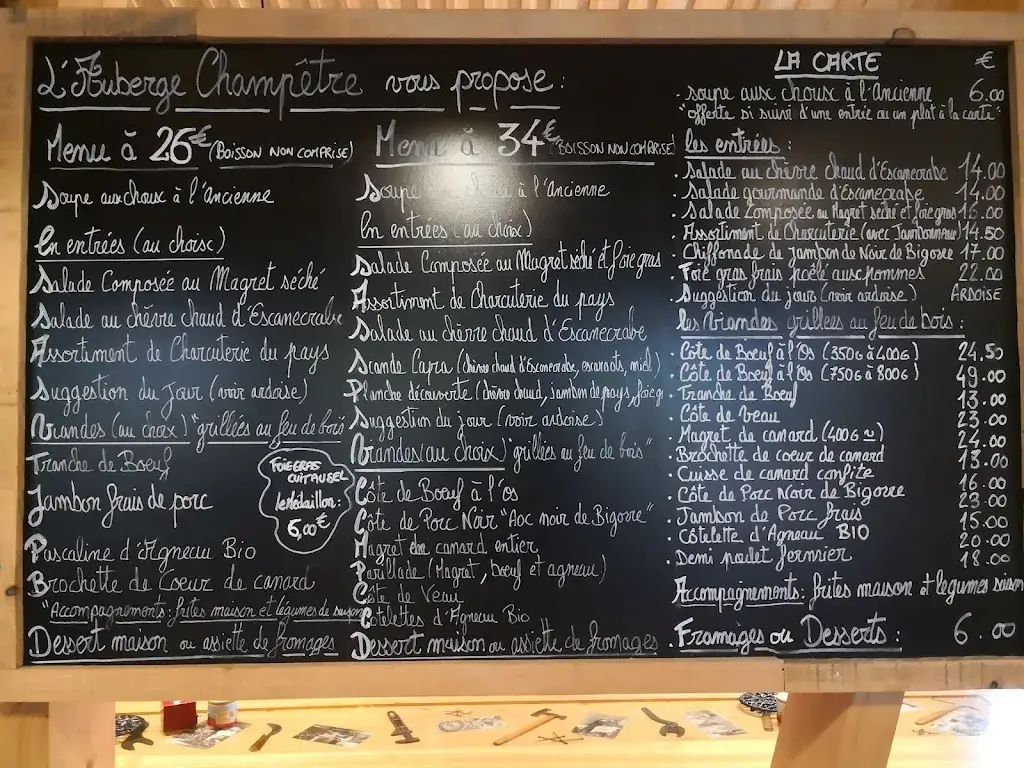 L'Auberge Champêtre vous propose :
Menu à 26€ (BOISSON NON COMPRISE)
Soupe aux choux à l'ancienne
En entrées (au choix)
Salade Composée au Magret séché
Salade au chèvre chaud d'Escanecrabe
Assortiment de Charcuterie du pays
Suggestion du jour (voir ardoise)
Viandes (au choix) "grillées au feu de bois
Tranche de Boeuf
Jambon frais de porc
Pascaline d'Agneau Bio
Brochette de Coeur de canard
"Accompagnements: frites maison et légumes de saison
Dessert maison ou assiette de fromages
FOIE GRAS
CUIT AU SEL
le Médaillon:
6,00€
Menu à 34€ (BOISSON NON COMPRISE)
Soupe à l'ancienne
En entrées (au choix)
Salade Composée au Magret séché et foie gras
Assortiment de Charcuterie du pays
Salade au chèvre chaud d'Escanecrabe
Scande Capra (chèvre chaud d'Escanecrabe, escargots, miel)
Planche découverte (chèvre chaud, jambon de pays, foie g.
Suggestion du jour (voir ardoise)
Viandes (au choix) "grillées au feu de bois"
Côte de Boeuf à l'os
Côte de Porc Noir "Aoc noir de Bigorre"
Magret de canard entier
Parillade (Magret, boeuf et agneau)
Côte de Veau
Côtelettes d'Agneau Bio
Dessert maison ou assiette de fromages
LA CARTE €
. soupe aux choux à l'Ancienne 6.00
"offerte si suivi d'une entrée ou un plat à la carte"
les entrées :
. Salade au chèvre chaud d'Escanecrabe 14.00
. Salade gourmande d'Escanecrabe 14.00
. Salade Composée au Magret séché et foie gras 16.00
. Assortiment de Charcuterie (avec Jambon Noir) 14.50
. Chiffonade de Jambon de Noir de Bigorre 17.00
. Foie gras frais poêlé aux pommes 22.00
. Suggestion du jour (voir ardoise) ARDOISE
les Viandes grillées au feu de bois :
. Côte de Boeuf à l'Os (350G à 400G) 24.50
. Côte de Boeuf à l'Os (750G à 800G) 49.00
. Tranche de Boeuf 13.00
. Côte de Veau 23.00
. Magret de canard (400G ≃) 24.00
. Brochette de coeur de canard 13.00
. Cuisse de canard confite 16.00
. Côte de Porc Noir de Bigorre 23.00
. Jambon de Porc frais 15.00
. Côtelette d'Agneau BIO 20.00
. Demi poulet fermier 18.00
Accompagnements: frites maison et légumes saison
. Fromages ou Desserts : 6.00